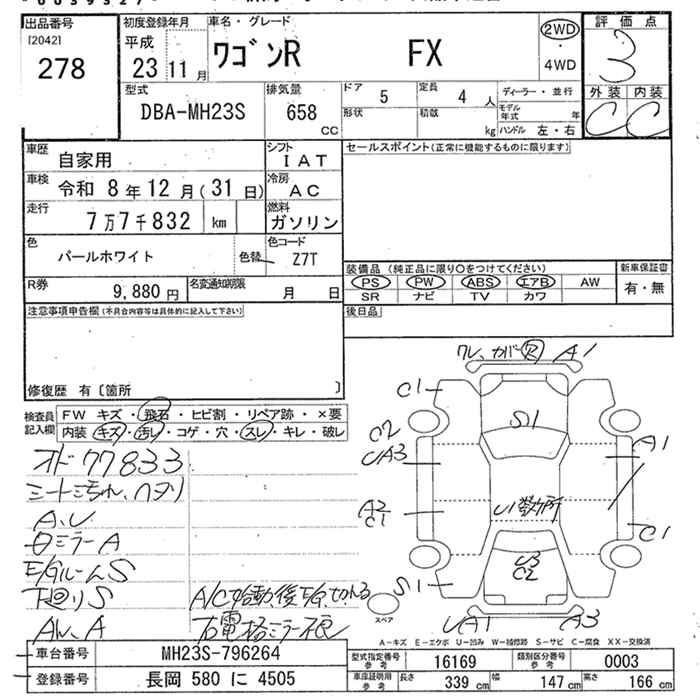 出品番号
[2042]
278
初度登録年月
平成
23 11 月
車名・グレード
ワゴンR FX
2WD
・
4WD
評価点
3
外装 内装
C C
型式
DBA-MH23S
排気量
658
CC
ドア
5
定員
4 人
形状
積載
kg
ディーラー・並行
モデル年式 年
ハンドル 左・右
車歴
自家用
シフト
IAT
車検
令和 8年 12月(31日)
冷房
AC
走行
7万7千832 km
燃料
ガソリン
色
パールホワイト
色替
色コード
Z7T
R券
9,880 円
名変通知期限
月 日
セールスポイント(正常に機能するものに限ります)
装備品 (純正品に限り○をつけてください)
PS PW ABS エアB AW
SR ナビ TV カワ
新車保証書
有・無
後日品
注意事項申告欄(不具合内容等は具体的に記入して下さい)
修復歴 有〔箇所 〕
検査員
記入欄
FW キズ・飛石・ヒビ割・リペア跡・×要
内装 キズ・汚レ・コゲ・穴・スレ・キレ・破レ
オド77833
A、U
ミラーA
E/GルームS
下廻りS
A/C始動後E/G切れる
右電格ミラー不良
ワレ、カバー欠 A1
C1
C2
UA3
A2
C1
S1
S1
U1数ヶ所
U3
C2
A1
C1
UA1
A3
スペア
A−キズ E−エクボ U−凹み W−補修跡 S−サビ C−腐食 XX−交換済
車台番号
MH23S-796264
登録番号
長岡 580 に 4505
型式指定番号
参考
16169
類別区分番号
参考
0003
車庫証明用
参考
長さ 339 cm
幅 147 cm
高さ 166 cm